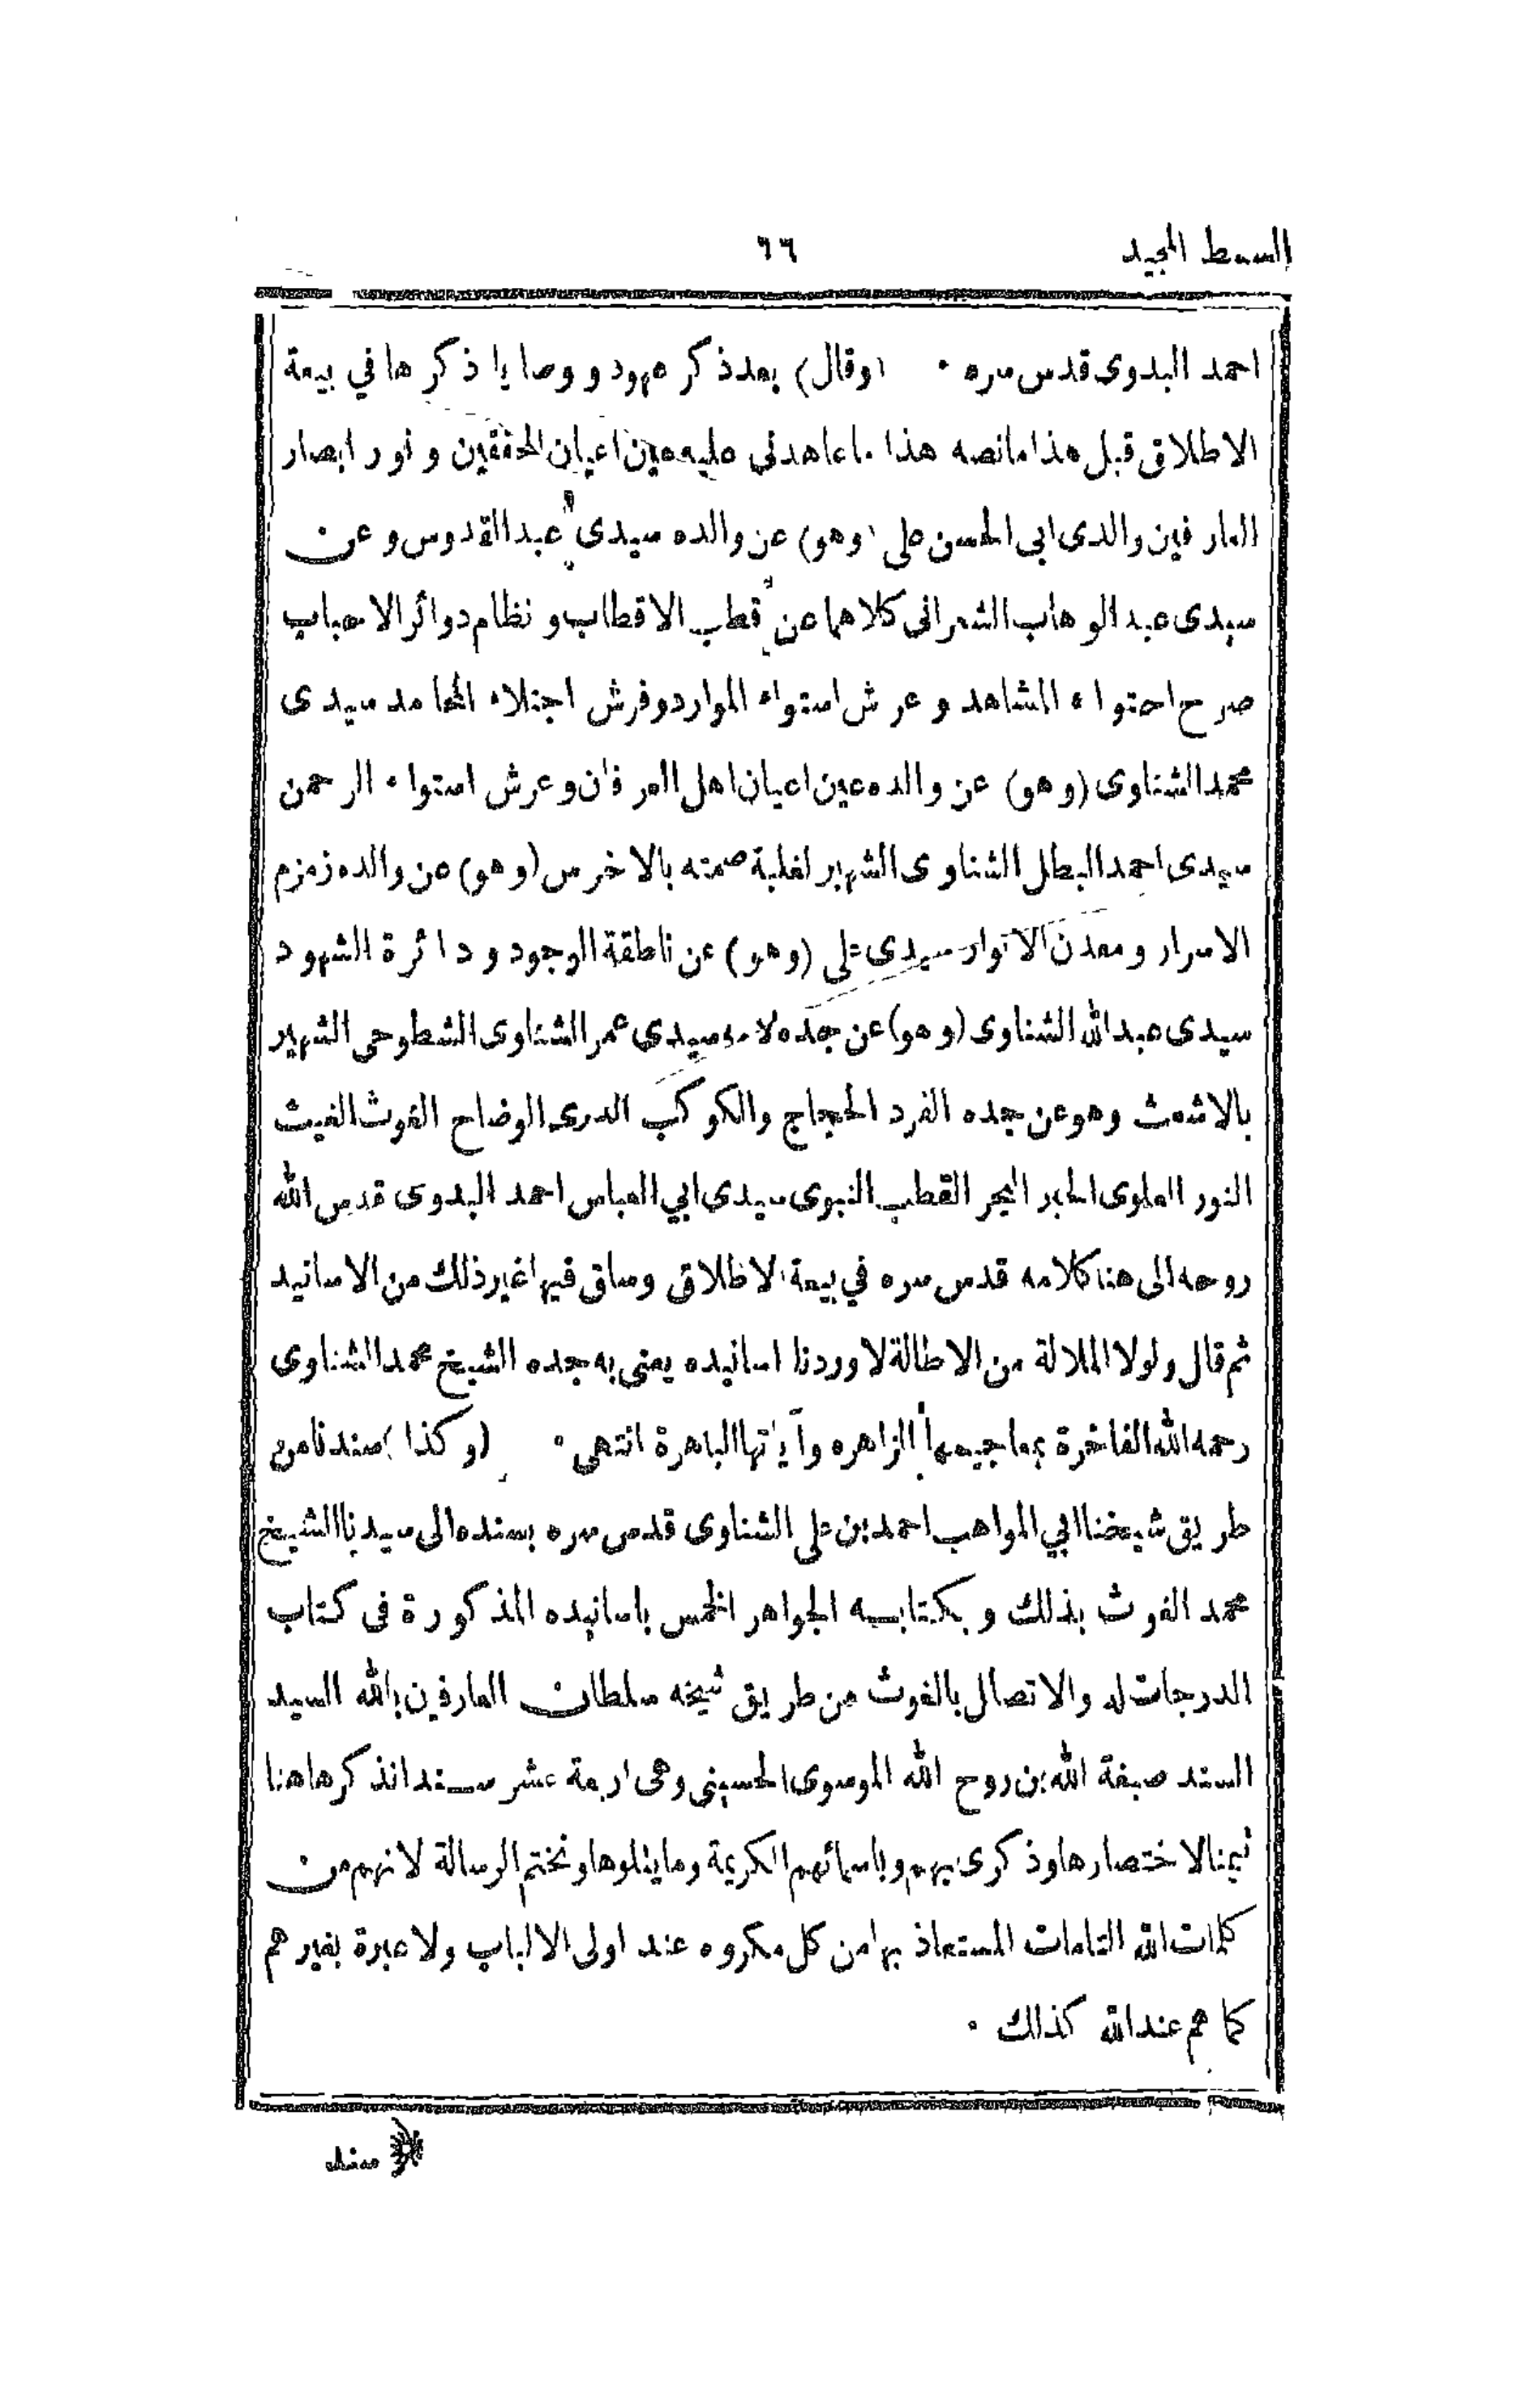 السمط المجيد
٦٦
احمد البدوى قدس سره ٠ (وقال) بعد ذكر عهود و وصايا ذكرها في بيعة
الاطلاق قبل هذا ما نصه هذا ما عاهدنى عليه عين اعيان المحققين و نور ابصار
العارفين والدى ابى الحسن على (وهو) عن والده سيدى عبد القدوس و عن
سيدى عبد الوهاب الشعرانى كلاهما عن قطب الاقطاب و نظام دوائر الاحباب
صرح احتواء المشاهد و عرش استواء الموارد و فرش اجتلاء المحامد سيدى
محمد الشناوى (وهو) عن والده عين اعيان اهل العرفان و عرش استواء الرحمن
سيدى احمد البطل الشناوى الشهير لغلبة صمته بالاخرس (وهو) عن والده زمزم
الاسرار و معدن الانوار سيدى على (وهو) عن ناطقة الوجود و دائرة الشهود
سيدى عبد الله الشناوى (وهو) عن جده لامه سيدى عمر الشناوى الشطوحى الشهير
بالاشعث وهو عن جده الفرد الحجاج والكوكب الدرى الوضاح الغوث الغيث
النور العلوى الحبر البحر القطب النبوى سيدى ابي العباس احمد البدوى قدس الله
روحه الى هنا كلامه قدس سره في بيعة الاطلاق وساق فيها غير ذلك من الاسانيد
ثم قال ولولا الملالة من الاطالة لاوردنا اسانيده يعنى به جده الشيخ محمد الشناوى
رحمه الله الفاخرة الزاهره وآياتها الباهرة انتهى ٠ (وكذا) سندنا من
طريق شيخنا ابي المواهب احمد بن على الشناوى قدس سره بسنده الى سيدنا الشيخ
محمد الغوث بذلك و بكتابه الجواهر الخمس باسانيده المذكورة فى كتاب
الدرجات له والاتصال بالغوث من طريق شيخه سلطان العارفين بالله السيد
السند صبغة الله بن روح الله الموسوى الحسينى وهى اربعة عشر سندا نذكرها هنا
تيمنا لاختصارها وذكرى بهم وباسمائهم الكريمة وما يتلوها ونختم الرسالة لانهم من
كلمات الله التامات المستعاذ بها من كل مكروه عند اولى الالباب ولا عبرة بغيرهم
كما هم عند الله كذلك ٠
سند